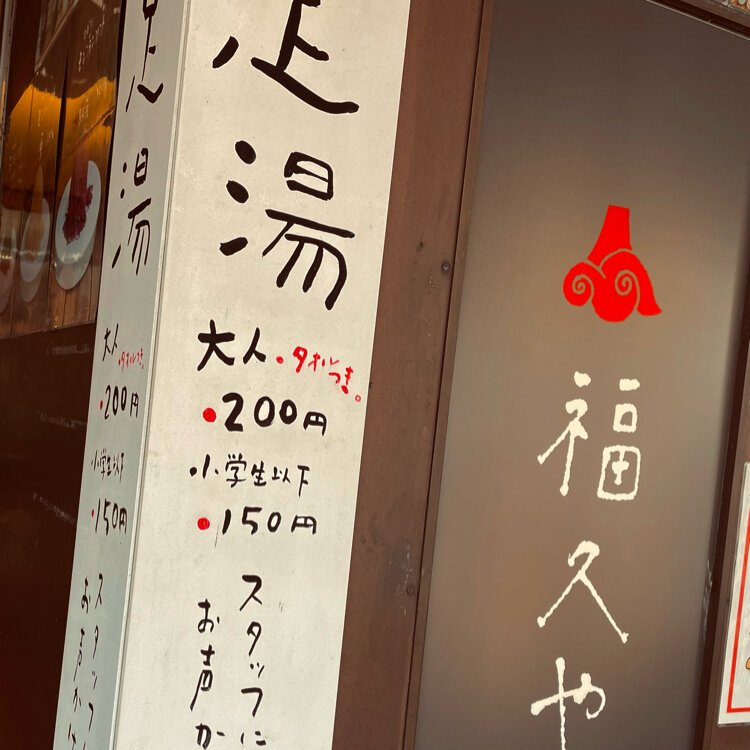 足湯
大人
・タオルつき。
・200円
小学生以下
・150円
スタッフに
お声か
足湯
大人
・タオルつき。
・200円
小学生以下
・150円
スタッフ
お声か
福久や